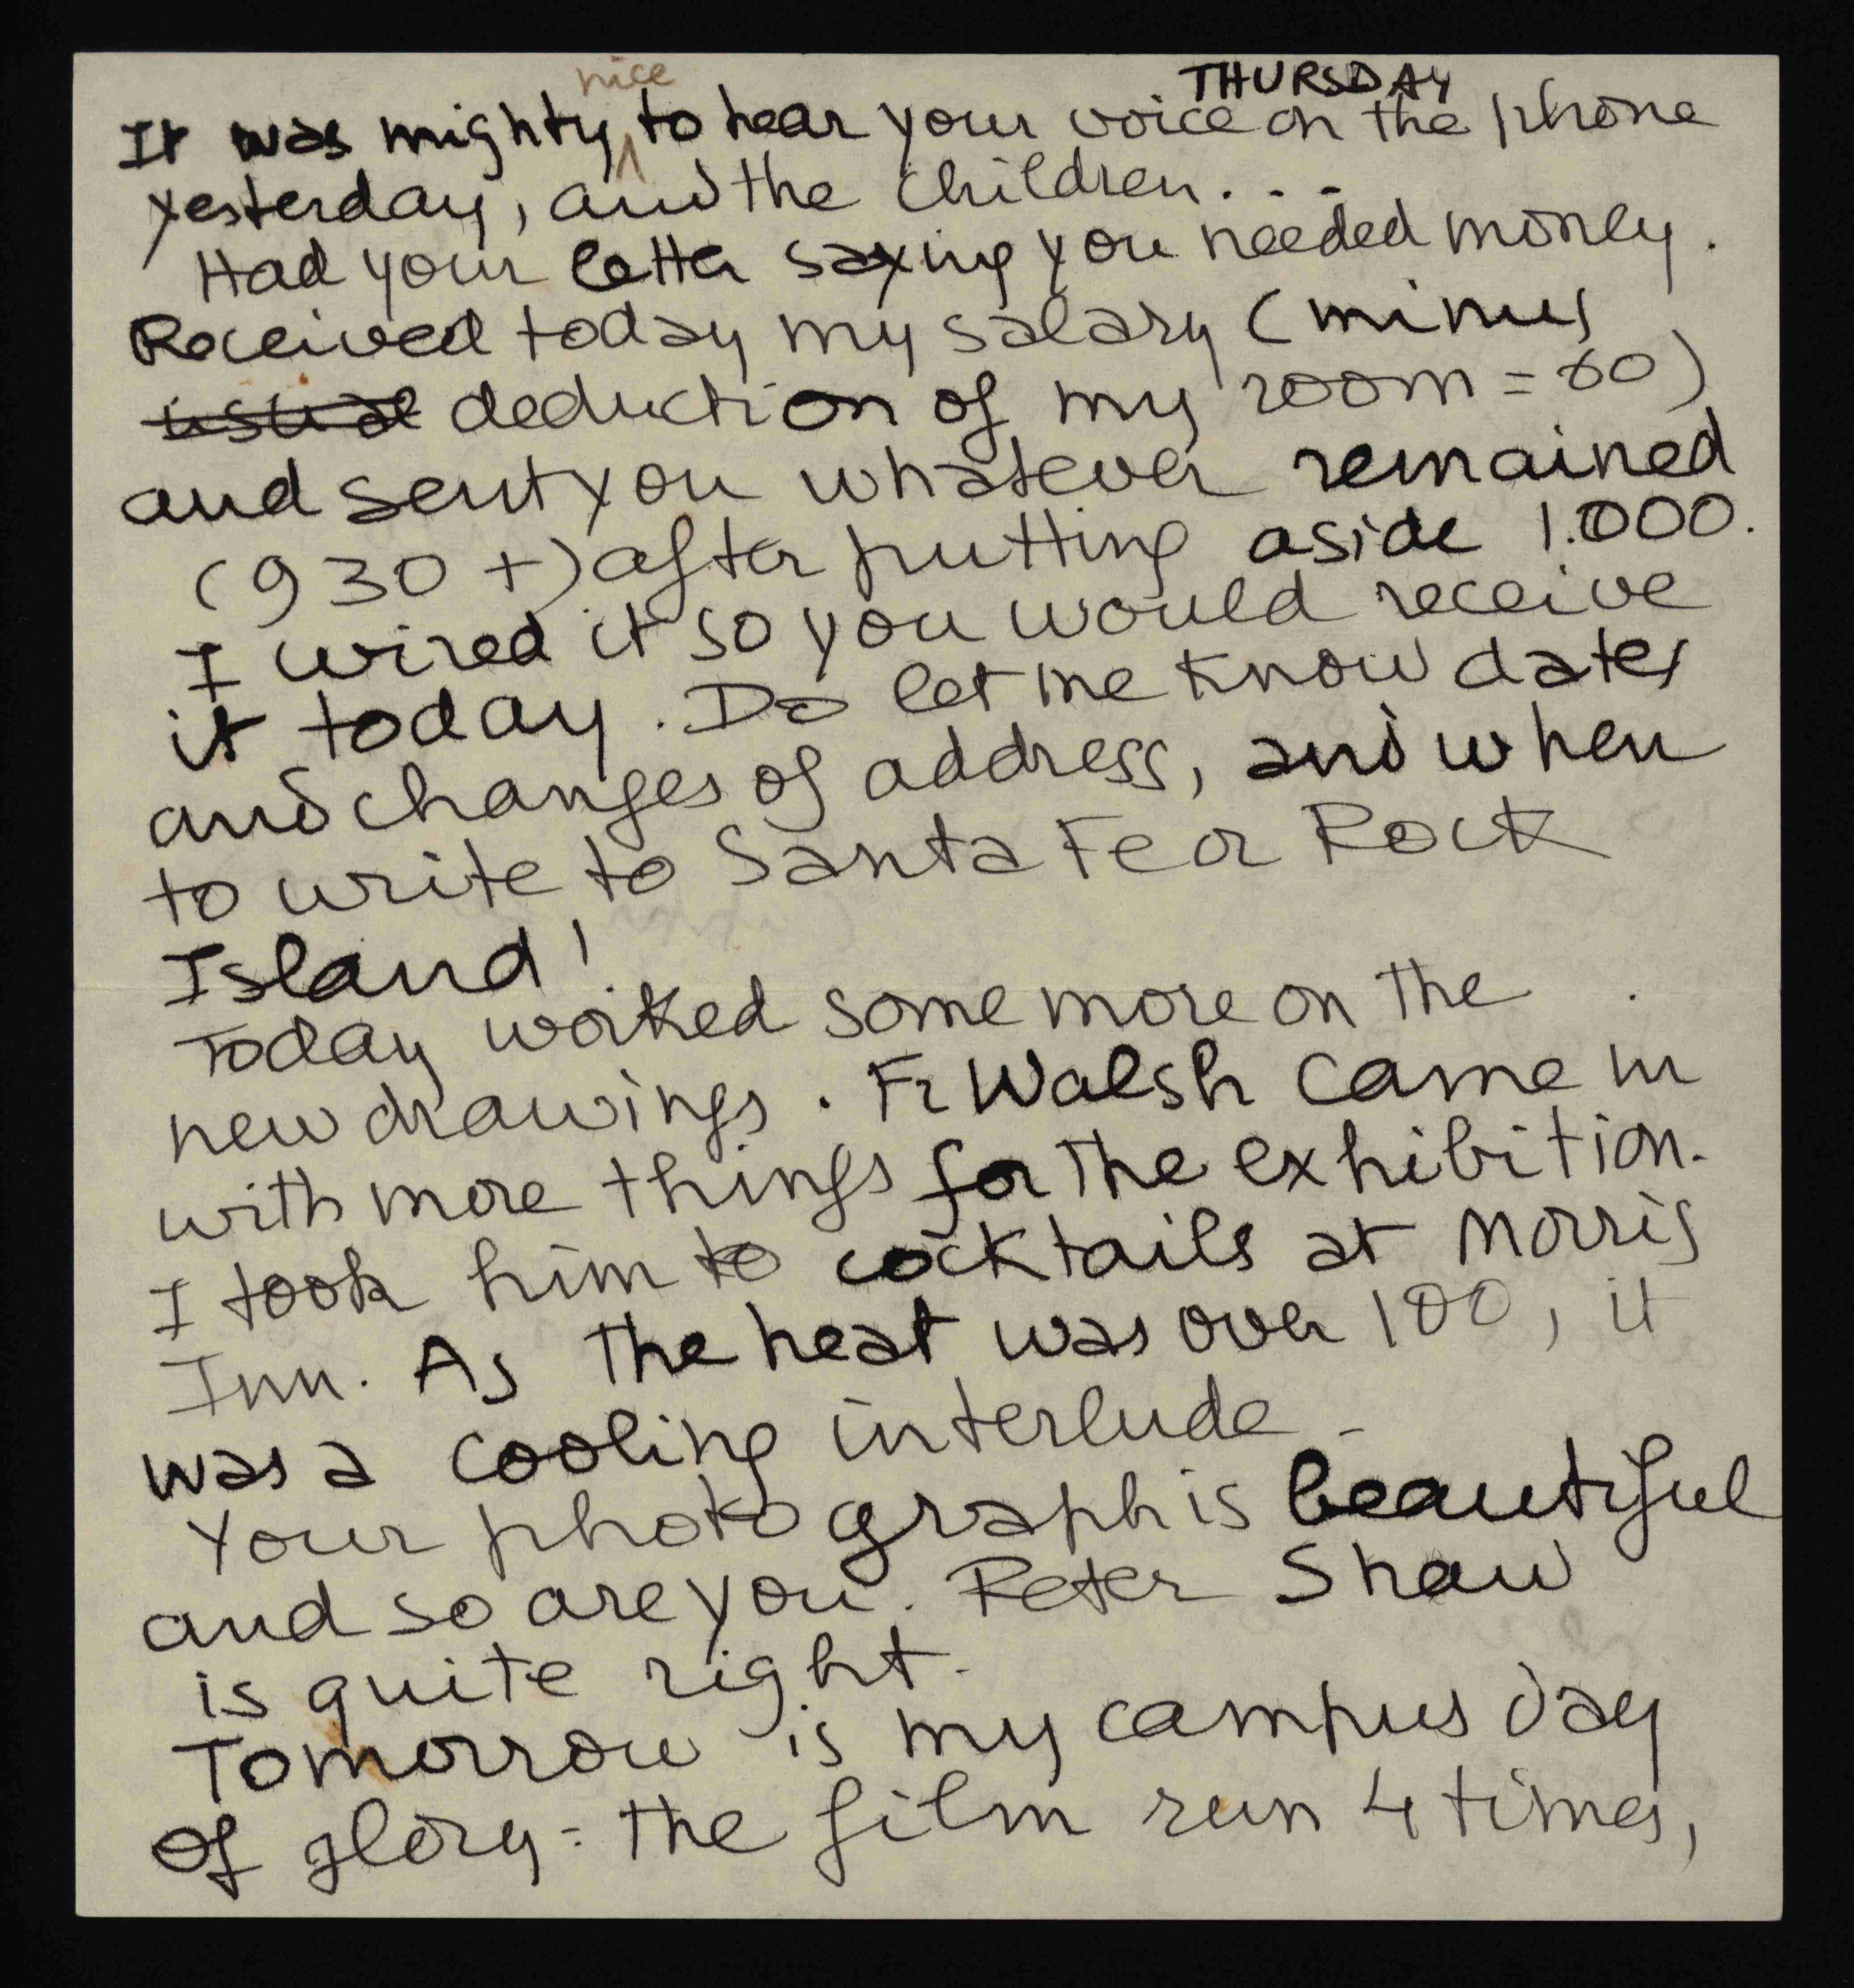 THURSDAY
It was mighty nice to hear your voice on the phone
yesterday, and the children...
Had your letter saying you needed money.
Received today my salary (minus
usual deduction of my room = 60)
and sent you whatever remained
(930+) after putting aside 1.000.
I wired it so you would receive
it today. Do let me know dates
and changes of address, and when
to write to Santa Fe or Rock
Island!
Today worked some more on the
new drawings. Fr Walsh came in
with more things for the exhibition.
I took him to cocktails at Morris
Inn. As the heat was over 100, it
was a cooling interlude -
Your photograph is beautiful
and so are you. Peter Shaw
is quite right.
Tomorrow is my campus day
of glory = the film run 4 times,